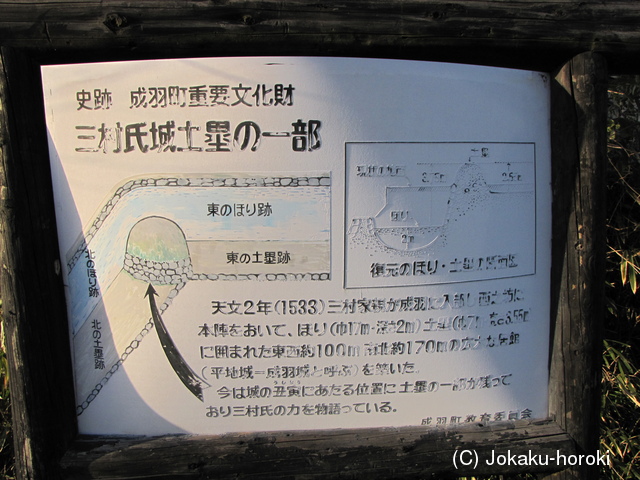 史跡 成羽町重要文化財
三村氏城土塁の一部
東のほり跡
東の土塁跡
北のほり跡
北の土塁跡
土塁
ほり
2m
復元のほり・土塁の断面図
天文2年(1533)三村家親が成羽に入部し
本陣をおいて、ほり(巾17m・深さ2m)土塁(巾7m 高さ3.55m
に囲まれた東西約100m南北約170mの
(平地城=成羽城と呼ぶ)を築いた。
今は城の丑寅にあたる位置に土塁の一部が残って
おり三村氏の力を物語っている。
成羽町教育委員会
(C) Jokaku-horoki